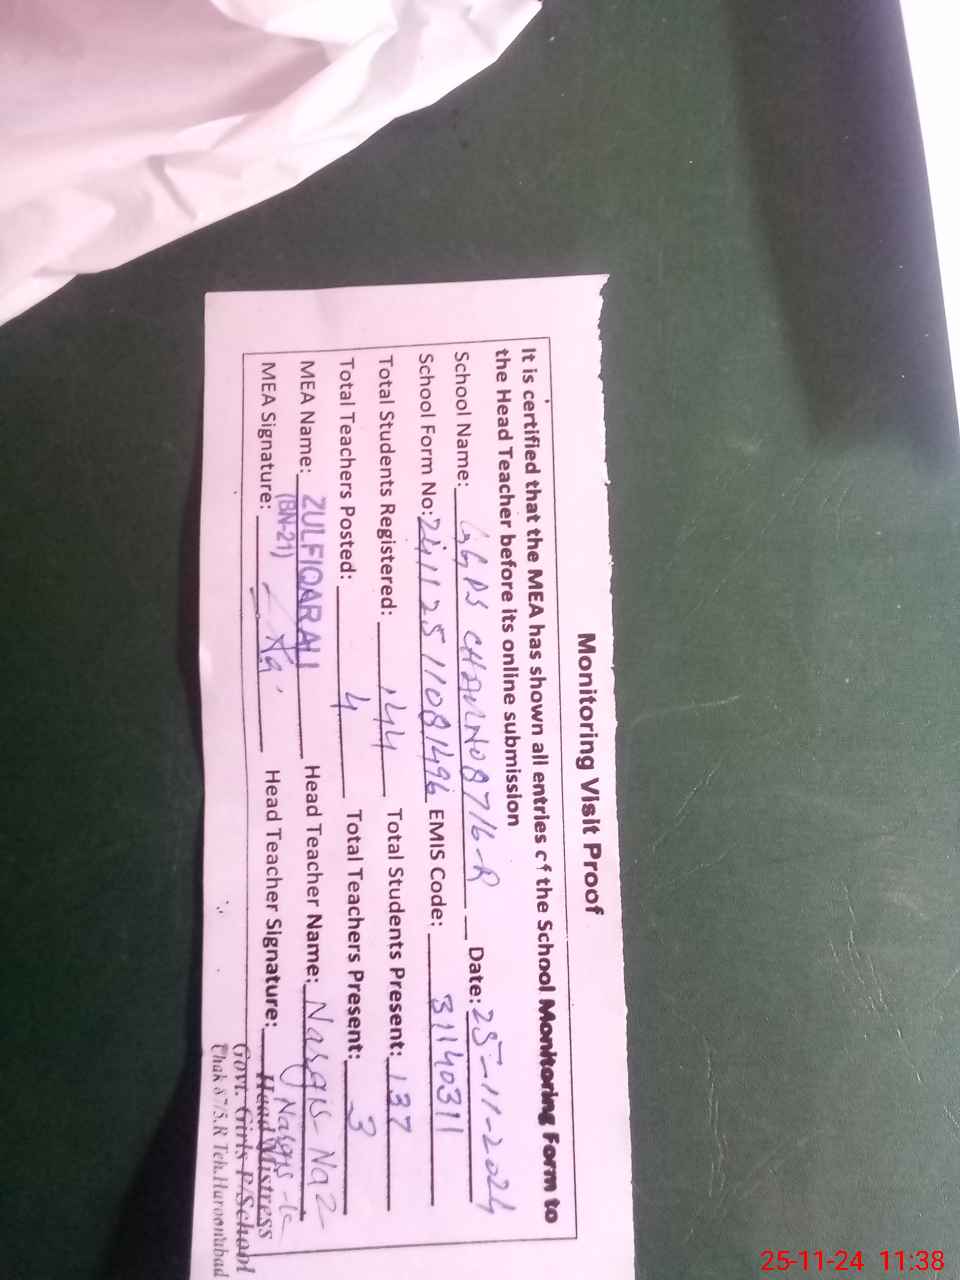 Monitoring Visit Proof
It is certified that the MEA has shown all entries of the School Monitoring Form to
the Head Teacher before its online submission
School Name: GGPS Date: 25-11-2024
School Form No: EMIS Code: 31140311
Total Students Registered: 144 Total Students Present: 137
Total Teachers Posted: 4 Total Teachers Present: 3
MEA Name: ZULFIQAR ALI Head Teacher Name: Nargis Naz
(BN-21)
MEA Signature: Head Teacher Signature: Nargis
Head Mistress
Govt. Girls P/School
Chak 87/5.R Teh.Haroonabad
25-11-24 11:38